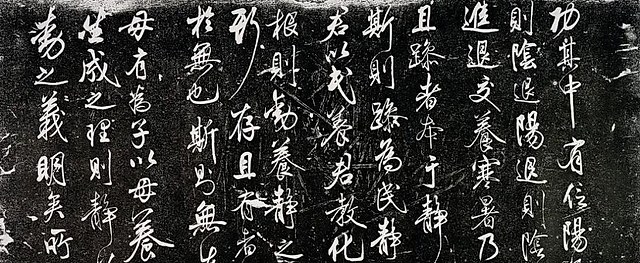 功其中有位陽
則陰退陽退則陰
進退交養寒暑乃
且躁者本于靜
斯則躁為民靜
君以民養君教化
根則動養靜之
存且有者
於無也斯則無
母有為子以母養
生成之理則靜
動之義明矣所